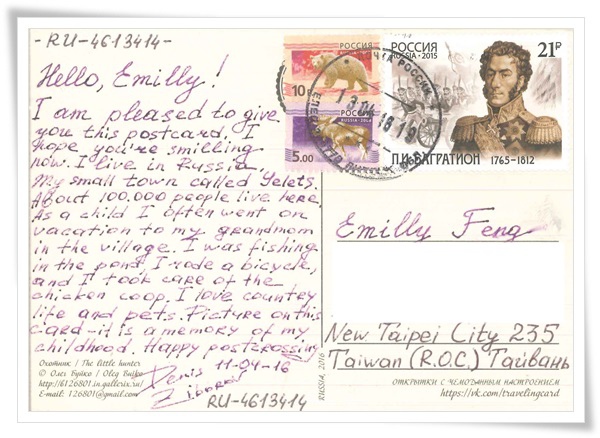 -RU-4613414-
Hello, Emilly!
I am pleased to give
you this postcard, I
hope you're smilling
now. I live in Russia,
My small town called Yelets.
About 100.000 people live here.
As a child I often went on
vacation to my grandmom
in the village. I was fishing
in the pond, I rode a bicycle,
and I took care of the
chicken coop. I love country
life and pets. Picture on this
card-it is a memory of my
childhood. Happy postcrossing
11-04-16
Denis
Охотник / The little hunter
© Олег Буйко / Oleg Buiko
http://6126801.in.gallerix.ru/
E-mail: 126801@gmail.com
RU-4613414
РОССИЯ
10
РОССИЯ
RUSSIA·2014
5.00
ПОЧТА РОССИИ
РОССИЯ
RUSSIA·2015
21Р
П.И. БАГРАТИОН
1765-1812
Emilly Feng
New Taipei City 235
Taiwan (R.O.C.) Тайвань
RUSSIA, 2016
ОТКРЫТКИ С ЧЕМОДАННЫМ НАСТРОЕНИЕМ
https://vk.com/travelingcard